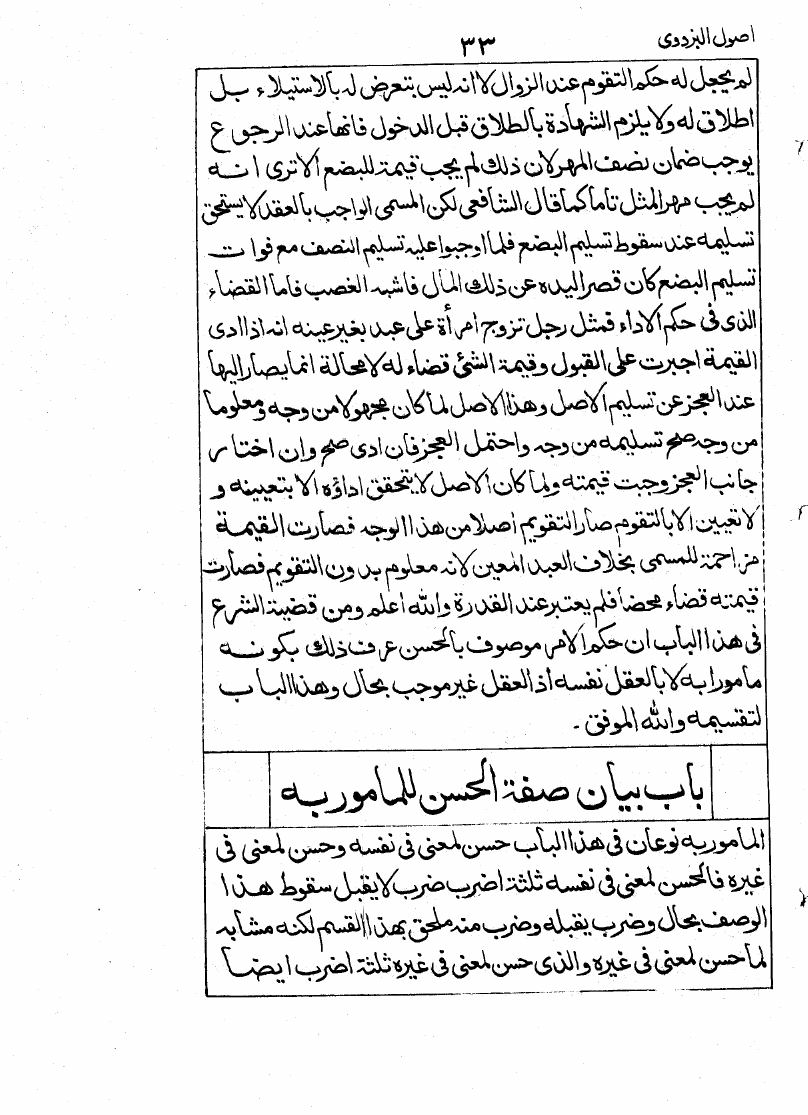 اصول البزدوى
٣٣
لم يجعل له حكم التقوم عند الزوال لا انه ليس بتعرض له بالاستيلاء بل
اطلاق له ولا يلزم الشهادة بالطلاق قبل الدخول فانها عند الرجوع
يوجب ضمان نصف المهر لان ذلك لم يجب قيمة للبضع الا ترى انه
لم يجب مهر المثل تاما كما قال الشافعى لكن المسمى الواجب بالعقد لا يستحق
تسليمه عند سقوط تسليم البضع فلما اوجبوا عليه تسليم النصف مع فوات
تسليم البضع كان قصر اليده عن ذلك المال فاشبه الغصب فاما القضاء
الذى فى حكم الاداء فمثل رجل تزوج امرأة على عبد بغير عينه انه اذا ادى
القيمة اجبرت على القبول وقيمة الشئ قضاء له لا محالة انما يصار اليها
عند العجز عن تسليم الاصل وهذا الاصل لما كان مجهولا من وجه ومعلوما
من وجه صح تسليمه من وجه واحتمل العجز فان ادى صح وان اختار
جانب العجز وجبت قيمته ولما كان الاصل لا يتحقق اداؤه الا بتعيينه و
لا تعيين الا بالتقوم صار التقويم اصلا من هذا الوجه فصارت القيمة
مزاحمة للمسمى بخلاف العبد المعين لانه معلوم بدون التقويم فصارت
قيمته قضاء محضا فلم يعتبر عند القدرة والله اعلم ومن قضية الشرع
فى هذا الباب ان حكم الامر موصوف بالحسن عرف ذلك بكونه
مامورا به لا بالعقل نفسه اذ العقل غير موجب بحال وهذا الباب
لتقسيمه والله الموفق ـ
باب بيان صفة الحسن للمامور به
المامور به نوعان فى هذا الباب حسن لمعنى فى نفسه وحسن لمعنى فى
غيره فالحسن لمعنى فى نفسه ثلثة اضرب ضرب لا يقبل سقوط هذا
الوصف بحال وضرب يقبله وضرب منه ملحق بهذا القسم لكنه مشابه
لما حسن لمعنى فى غيره والذى حسن لمعنى فى غيره ثلثة اضرب ايضا